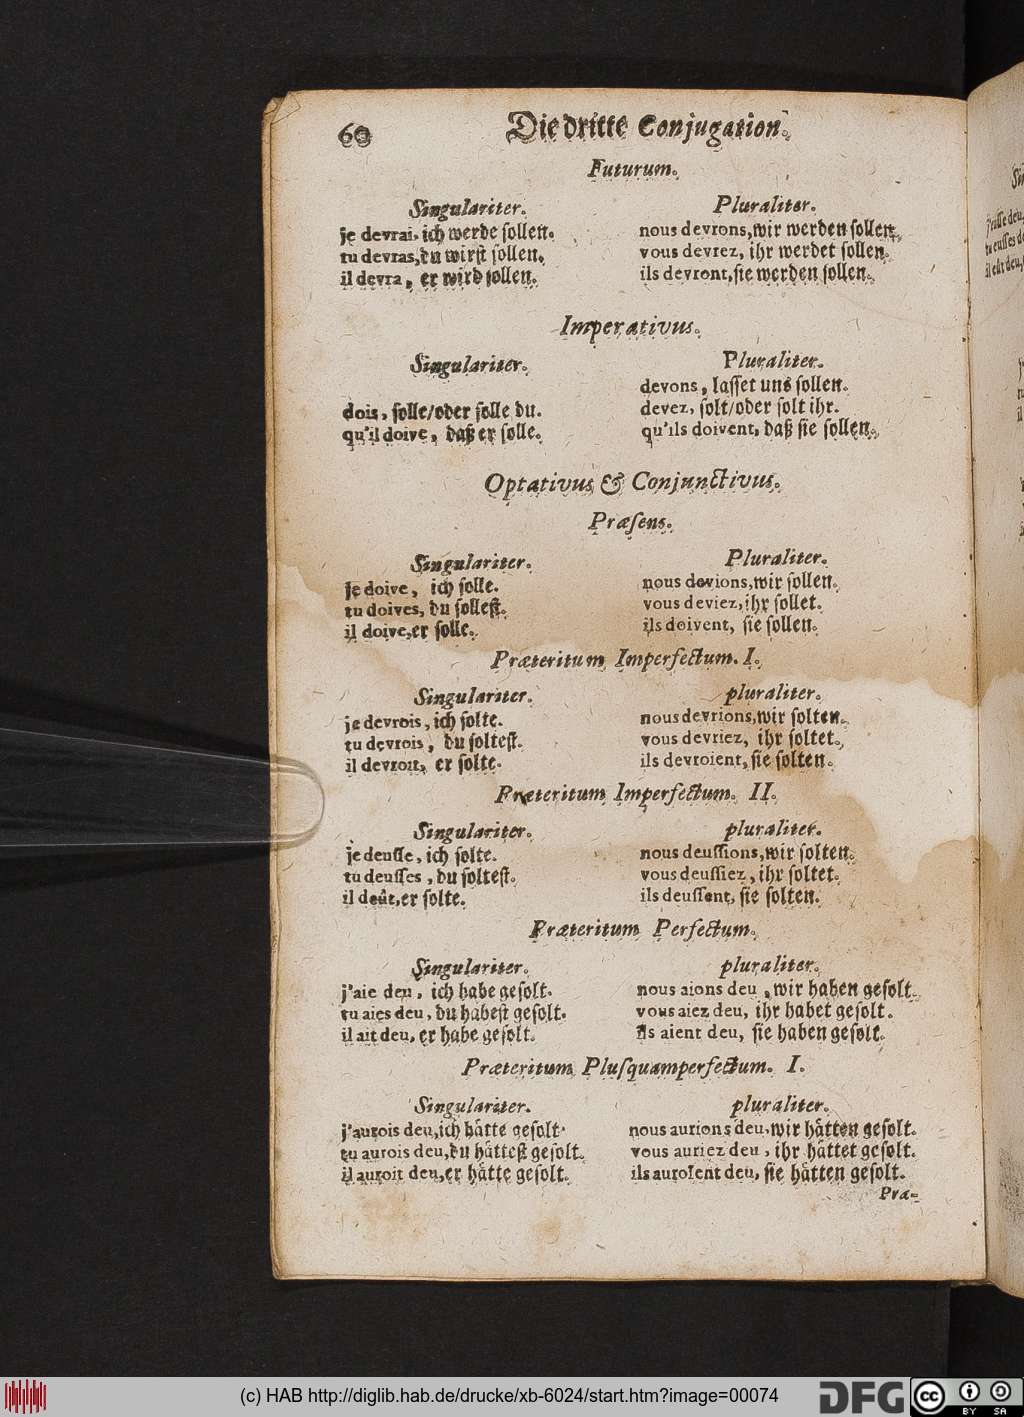 60 Die dritte Conjugation.
Futurum.
Singulariter. Pluraliter.
je devrai, ich werde sollen. nous devrons, wir werden sollen.
tu devras, du wirst sollen. vous devrez, ihr werdet sollen.
il devra, er wird sollen. ils devront, sie werden sollen.
Imperativus.
Singulariter. Pluraliter.
devons, lasset uns sollen.
dois, solle/oder solle du. devez, solt/oder solt ihr.
qu'il doive, daß er solle. qu'ils doivent, daß sie sollen.
Optativus & Conjunctivus.
Præsens.
Singulariter. Pluraliter.
je doive, ich solle. nous devions, wir sollen.
tu doives, du sollest. vous deviez, ihr sollet.
il doive, er solle. ils doivent, sie sollen.
Præteritum Imperfectum. I.
Singulariter. pluraliter.
je devrois, ich solte. nous devrions, wir solten.
tu devrois, du soltest. vous devriez, ihr soltet.
il devroit, er solte. ils devroient, sie solten.
Præteritum Imperfectum. II.
Singulariter. pluraliter.
je deusse, ich solte. nous deussions, wir solten.
tu deusses, du soltest. vous deussiez, ihr soltet.
il deût, er solte. ils deussent, sie solten.
Præteritum Perfectum.
Singulariter. pluraliter.
j'aie deu, ich habe gesolt. nous aions deu, wir haben gesolt.
tu aies deu, du habest gesolt. vous aiez deu, ihr habet gesolt.
il ait deu, er habe gesolt. ils aient deu, sie haben gesolt.
Præteritum Plusquamperfectum. I.
Singulariter. pluraliter.
j'aurois deu, ich hätte gesolt. nous aurions deu, wir hätten gesolt.
tu aurois deu, du hättest gesolt. vous auriez deu, ihr hättet gesolt.
il auroit deu, er hätte gesolt. ils auroient deu, sie hätten gesolt.
Præ-
(c) HAB http://diglib.hab.de/drucke/xb-6024/start.htm?image=00074
DFG
cc BY SA